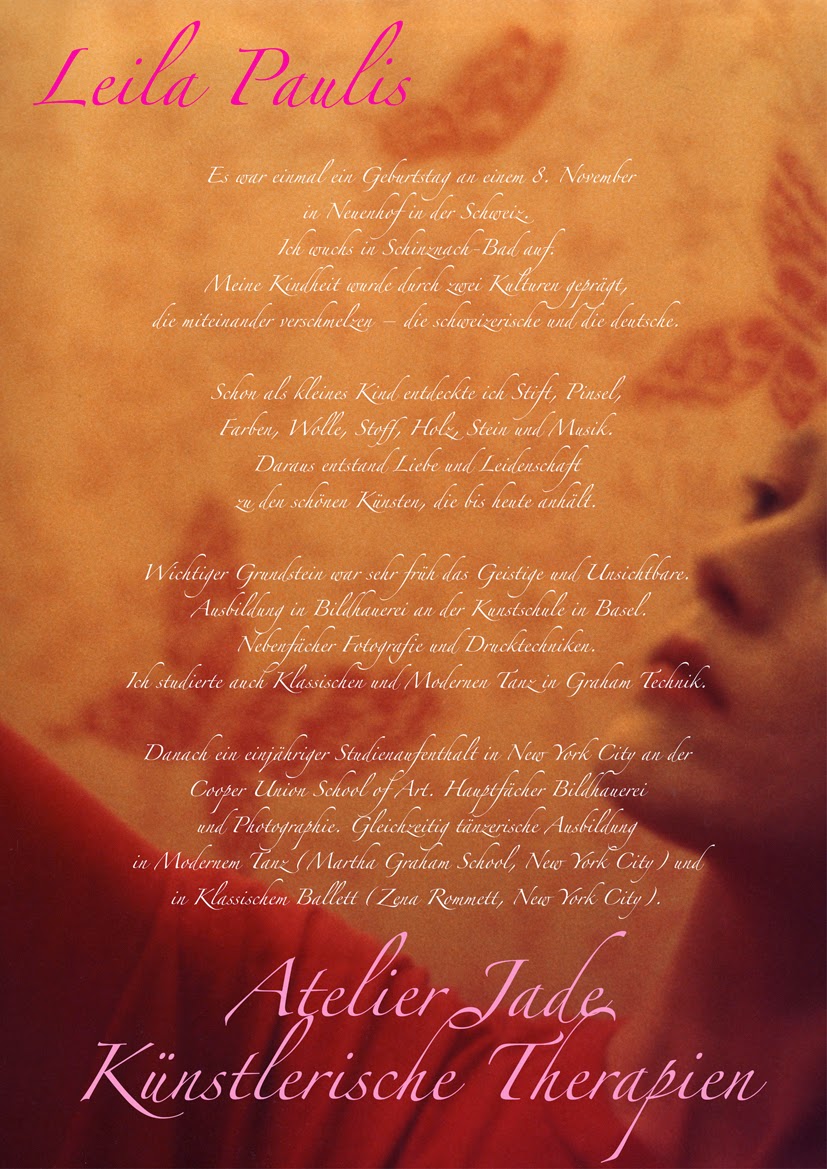 Leila Paulis
Es war einmal ein Geburtstag an einem 8. November
in Neuenhof in der Schweiz.
Ich wuchs in Schinznach-Bad auf.
Meine Kindheit wurde durch zwei Kulturen geprägt,
die miteinander verschmelzen – die schweizerische und die deutsche.
Schon als kleines Kind entdeckte ich Stift, Pinsel,
Farben, Wolle, Stoff, Holz, Stein und Musik.
Daraus entstand Liebe und Leidenschaft
zu den schönen Künsten, die bis heute anhält.
Wichtiger Grundstein war sehr früh das Geistige und Unsichtbare.
Ausbildung in Bildhauerei an der Kunstschule in Basel.
Nebenfächer Fotografie und Drucktechniken.
Ich studierte auch Klassischen und Modernen Tanz in Graham Technik.
Danach ein einjähriger Studienaufenthalt in New York City an der
Cooper Union School of Art. Hauptfächer Bildhauerei
und Photographie. Gleichzeitig tänzerische Ausbildung
in Modernem Tanz (Martha Graham School, New York City) und
in Klassischem Ballett (Zena Rommett, New York City).
Atelier Jade
Künstlerische Therapien